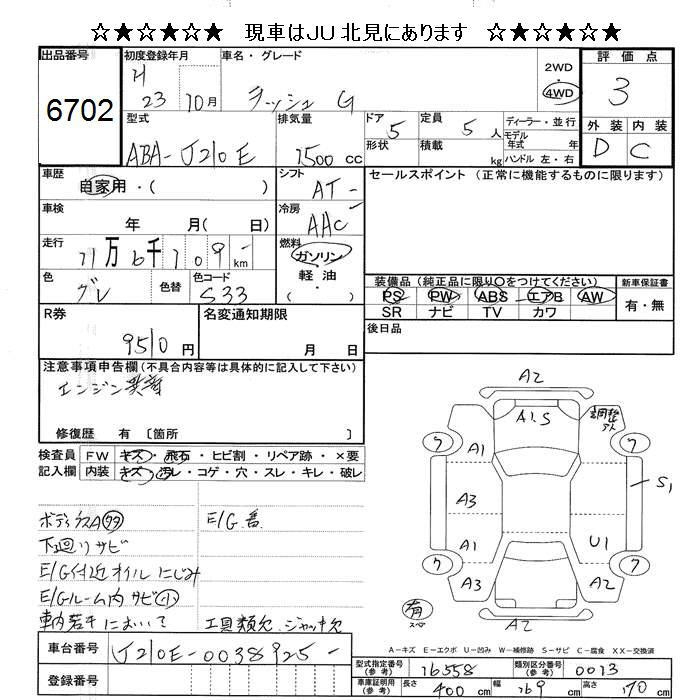 ☆★☆★☆★ 現車はJU北見にあります ☆★☆★☆★
出品番号
6702
初度登録年月
H 23 10月
車名・グレード
ラッシュ G
2WD
・
4WD
評価点
3
外装 内装
D C
型式
ABA-J210E
排気量
1500 cc
ドア 5
形状
定員 5 人
積載 kg
ディーラー・並行
モデル年式 年式
ハンドル 左・右
車歴
自家用・( )
シフト
AT
車検
年 月( 日)
冷房
AAC
走行
11万6千109 km
燃料
ガソリン
・
軽油
・
( )
色
グレ
色替
色コード
S33
セールスポイント (正常に機能するものに限ります)
装備品 (純正品に限り○をつけてください)
PS PW ABS エアB AW
SR ナビ TV カワ
新車保証書
有・無
後日品
R券
9510円
名変通知期限
月 日
注意事項申告欄(不具合内容等は具体的に記入して下さい)
エンジン異音
修復歴 有 〔箇所 〕
検査員記入欄
FW キズ・飛石・ヒビ割・リペア跡・×要
内装 キズ・汚レ・コゲ・穴・スレ・キレ・破レ
下廻りサビ
E/G付近オイルにじみ
E/Gルーム内サビ小
車内若干において
E/G音
工具類欠 ジャッキ欠
A2
A1.S
調整
A1
ワ ワ
A3
S1
A1
U1
ワ ワ
A3
A2
有
スペア
A2
A－キズ E－エクボ U－凹み W－補修跡 S－サビ C－腐食 XX－交換済
車台番号
J210E-0038925
登録番号
型式指定番号(参考)
16558
類別区分番号(参考)
0013
車庫証明用(参考)
長さ 400 cm
幅 169 cm
高さ 170 cm